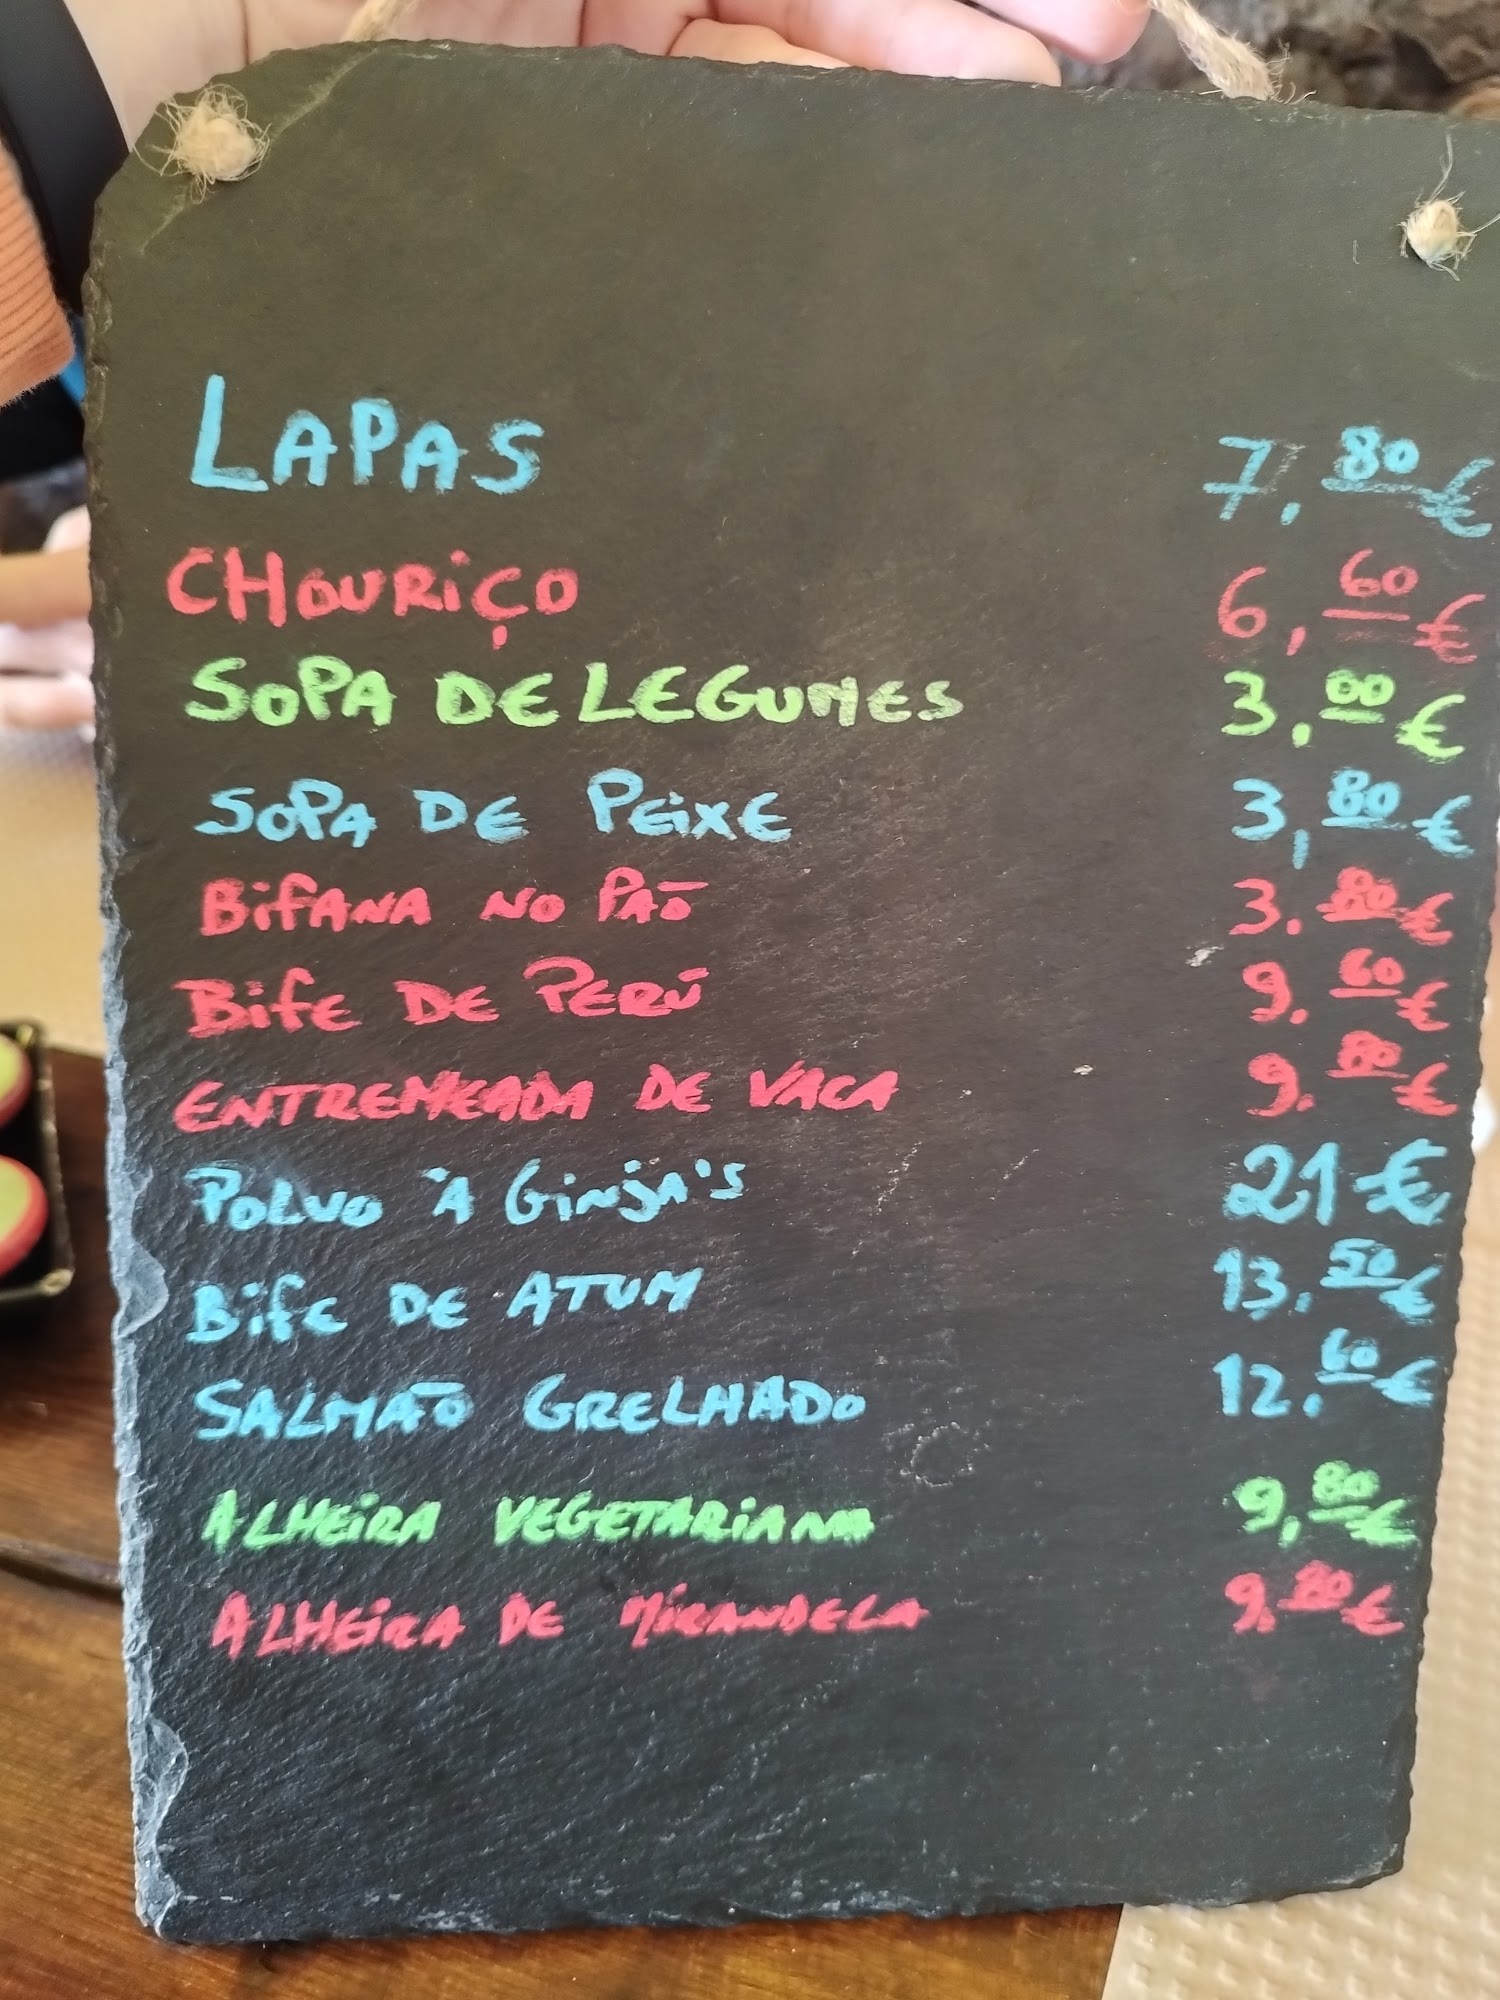 LAPAS 7,80€
CHOURIÇO 6,60€
SOPA DE LEGUMES 3,00€
SOPA DE PEIXE 3,80€
BIFANA NO PAÕ 3.80€
BIFE DE PERÚ 9.60€
ENTREMEADA DE VACA 9.80€
POLVO À GINJA'S 21€
BIFE DE ATUM 13.50€
SALMAÕ GRELHADO 12.60€
ALHEIRA VEGETARIANA 9,80€
ALHEIRA DE MIRANDELA 9.80€